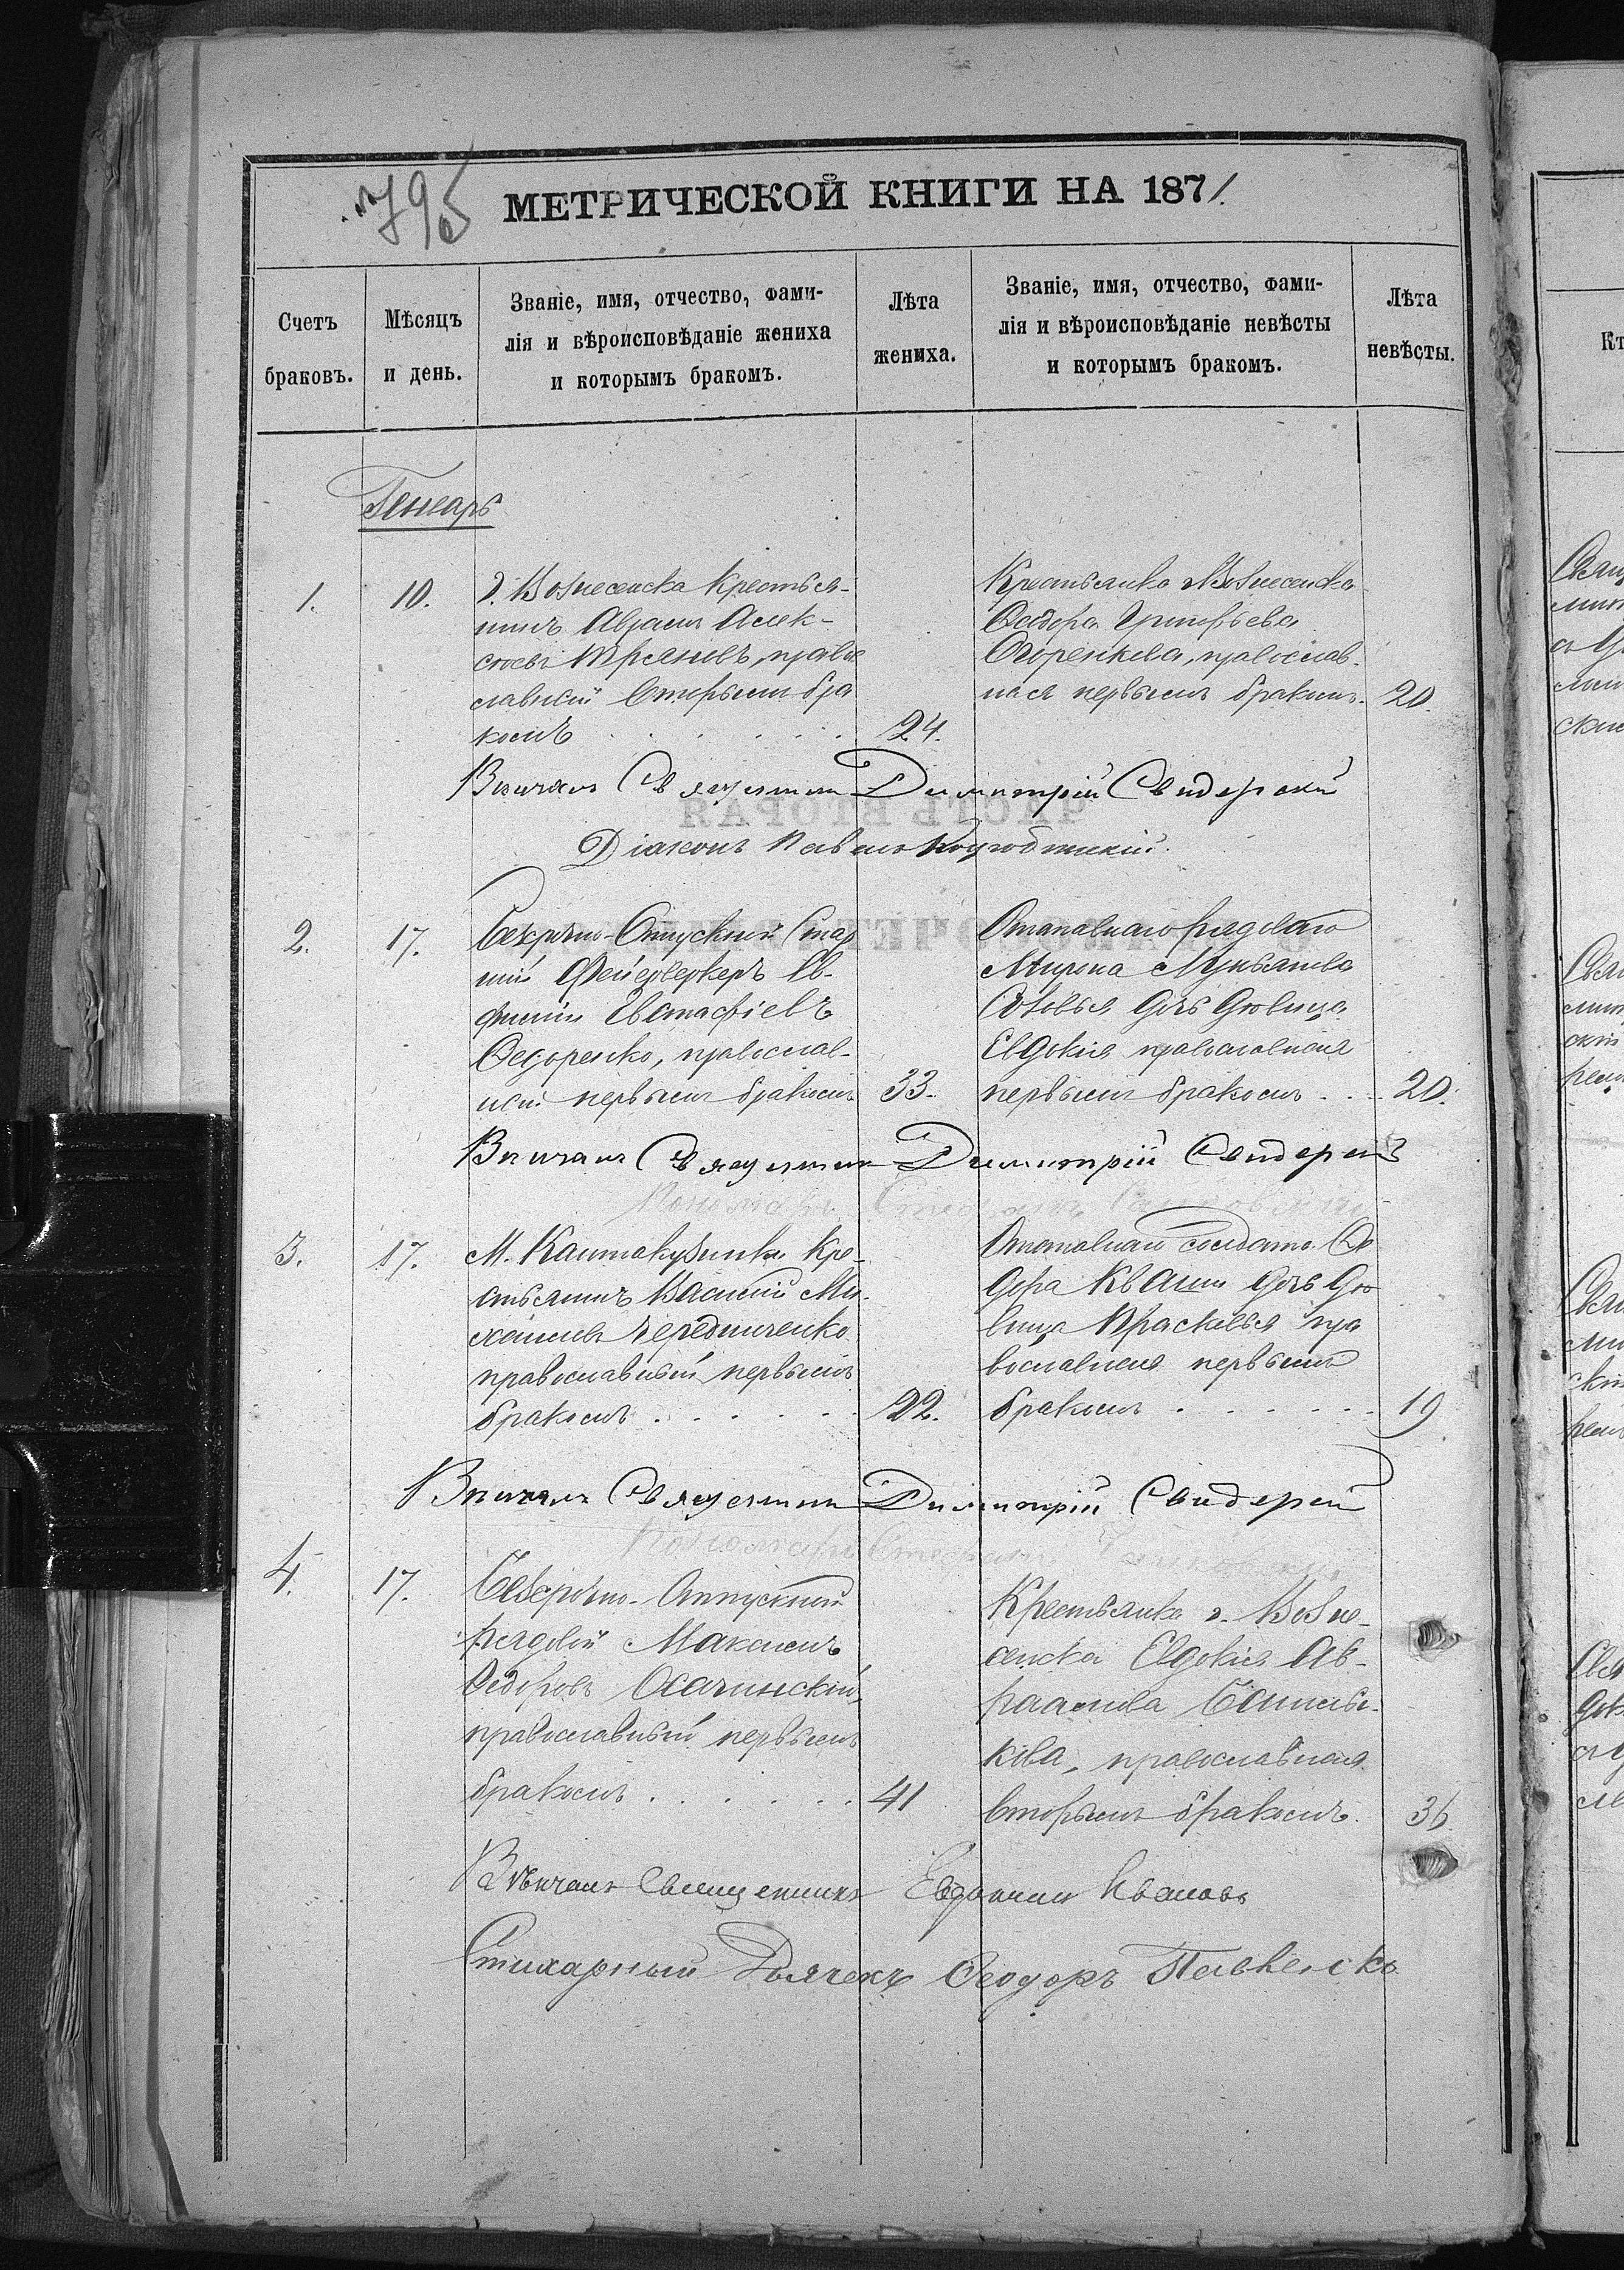 795
МЕТРИЧЕСКОЙ КНИГИ НА 1871.
Счетъ браковъ.
Мѣсяцъ и день.
Званіе, имя, отчество, фами-
лія и вѣроисповѣданіе жениха
и которымъ бракомъ.
Лѣта жениха.
Званіе, имя, отчество, фами-
лія и вѣроисповѣданіе невѣсты
и которымъ бракомъ.
Лѣта невѣсты.
Генварь
1. 10.
г. Вознесенска Крестья-
нинъ Аврамъ Алек-
сѣевъ православ
славный вторымъ бра
комъ 24.
Крестьянка г. Вознесенска
Феодора Григорьева
православ-
ная первымъ бракомъ. 20.
Вѣнчалъ Священникъ Димитрій Свидерскій
Діаконъ Павелъ
2. 17.
Безсрочно-Отпускной Стар
шій Фейерверкеръ Ев-
фимій Евстафіевъ
Федоренко, православ-
ный первымъ бракомъ 33.
Отставнаго рядоваго
Мирона Лукьянова
дочь дѣвица
Евдокія православная
первымъ бракомъ 20.
Вѣнчалъ Священникъ Димитрій Свидерскій
Пономарь Стефанъ
3. 17.
М. Кантакузинки Кре-
стьянинъ Василій Ми-
хаиловъ Чередниченко
православный первымъ
бракомъ 22.
Отставнаго солдата Фе
дора Кваши дочь дѣ
вица Параскевья пра
вославная первымъ
бракомъ 19
Вѣнчалъ Священникъ Димитрій Свидерскій
Пономарь Стефанъ
4. 17.
Безсрочно-Отпускный
рядовой Максимъ
Федоровъ Осачинскій,
православный первымъ
бракомъ 41
Крестьянка г. Возне-
сенска Евдокія Ав-
раамова
кова, православная
вторымъ бракомъ. 36
Вѣнчалъ Священникъ Евфимій Ивановъ
Стихарный Дьячекъ Феодоръ